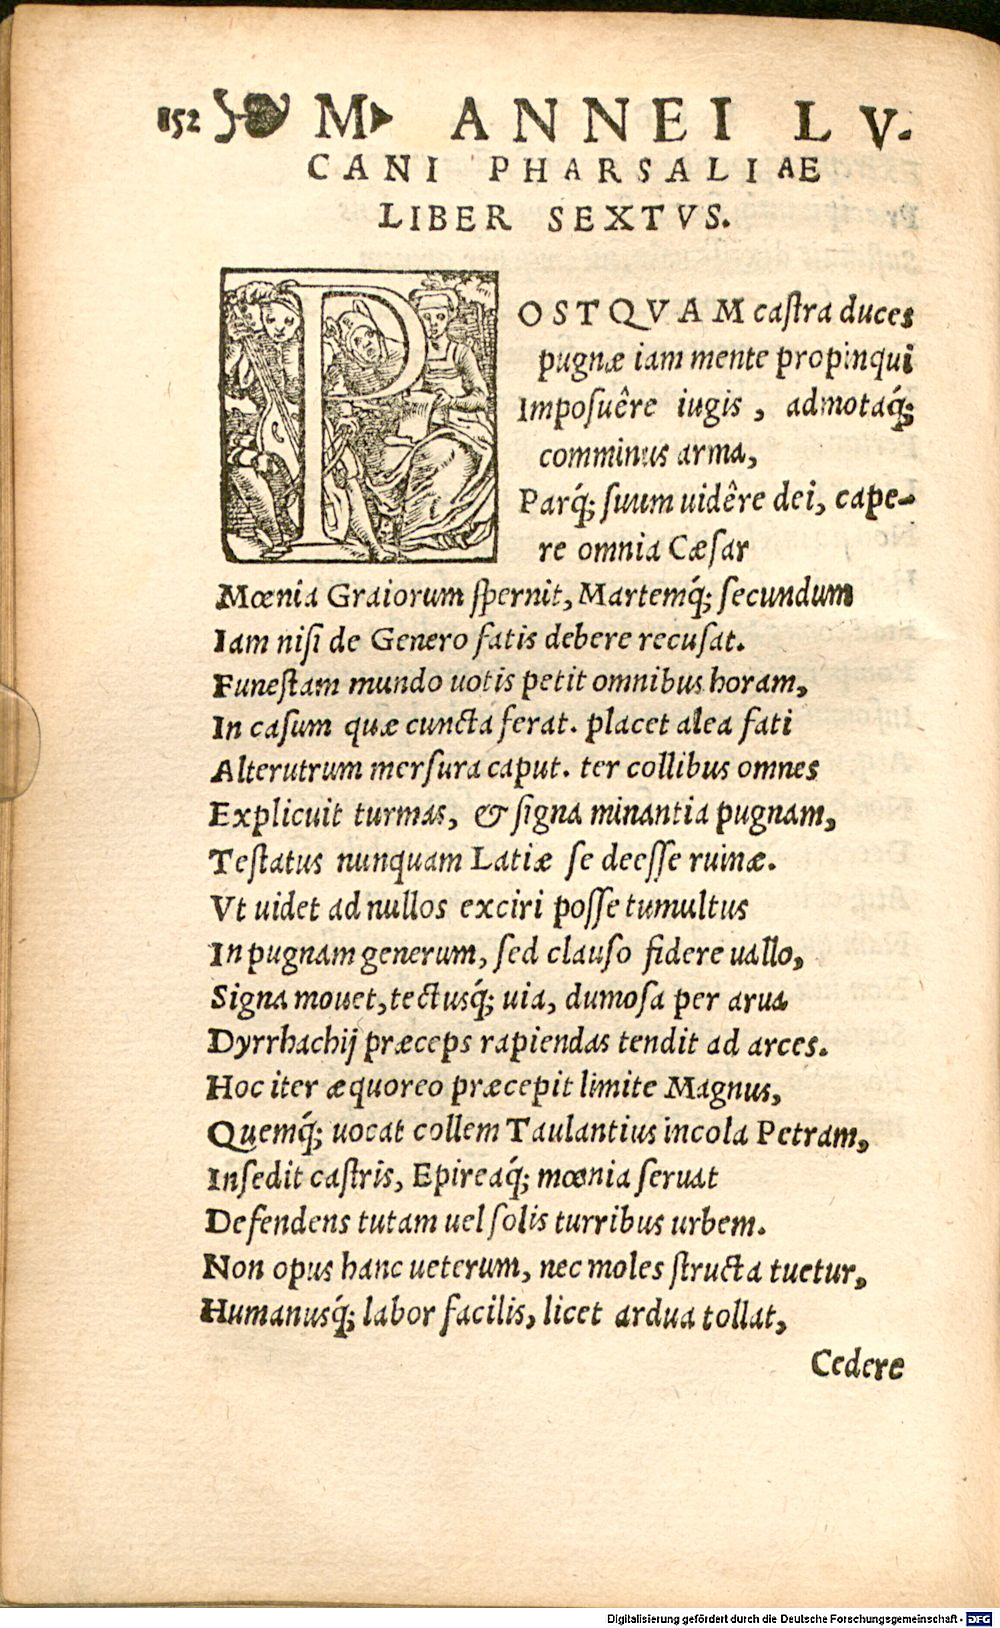 152 M. ANNEI LV-
CANI PHARSALIAE
LIBER SEXTVS.
POSTQVAM caſtra duces
pugnæ iam mente propinqui
Impoſuêre iugis, admotaq́;
comminus arma,
Parq́; ſuum uidêre dei, cape-
re omnia Cæſar
Mœnia Graiorum ſpernit, Martemq́; ſecundum
Iam niſi de Genero fatis debere recuſat.
Funeſtam mundo uotis petit omnibus horam,
In caſum quæ cuncta ferat. placet alea fati
Alterutrum merſura caput. ter collibus omnes
Explicuit turmas, & ſigna minantia pugnam,
Teſtatus nunquam Latiæ ſe deeſſe ruinæ.
Vt uidet ad nullos exciri poſſe tumultus
In pugnam generum, ſed clauſo fidere uallo,
Signa mouet, tectusq́; uia, dumoſa per arua
Dyrrhachij præceps rapiendas tendit ad arces.
Hoc iter æquoreo præcepit limite Magnus,
Quemq́; uocat collem Taulantius incola Petram,
Inſedit caſtris, Epireaq́; mœnia ſeruat
Defendens tutam uel ſolis turribus urbem.
Non opus hanc ueterum, nec moles ſtructa tuetur,
Humanusq́; labor facilis, licet ardua tollat,
Cedere
Digitalisierung gefördert durch die Deutsche Forschungsgemeinschaft - DFG